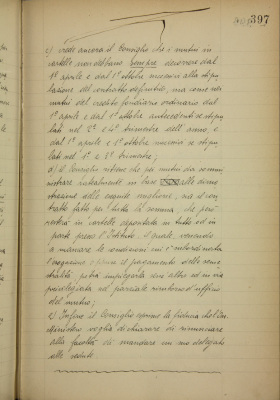 397
c) vede ancora il Consiglio che i mutui in
cartelle non debbano sempre decorrere dal
1° aprile e dal 1° ottobre successivi alla stipu
lazione del contratto definitivo, ma come nei
mutui del credito fondiario ordinario dal
1° aprile e dal 1° ottobre antecedenti se stipu
lati nel 2° e 4° trimestre dell'anno e
dal 1° aprile e 1° ottobre successivi se stipu
lati nel 1° e 3° trimestre;
d) il Consiglio ritiene che pei mutui da sommi
nistrare ratealmente in base alle dimo
strazioni delle eseguite migliorie, sia il con
tratto fatto per tutta la somma che
in cartelle depositata in tutto od in
parte presso l'Istituto, il quale, venendo
a mancare le condizioni cui è subordinata
l'erogazione o presso il pagamento delle seme
stralità potrà impiegarla ad altro ed in via
privilegiata nel parziale rimborso d'ufficio
del mutuo;
e) Infine il Consiglio esprime la fiducia che l'On.
Ministero voglia dichiarare di rinunciare
alla facoltà di mandare un suo delegato
alle sedute